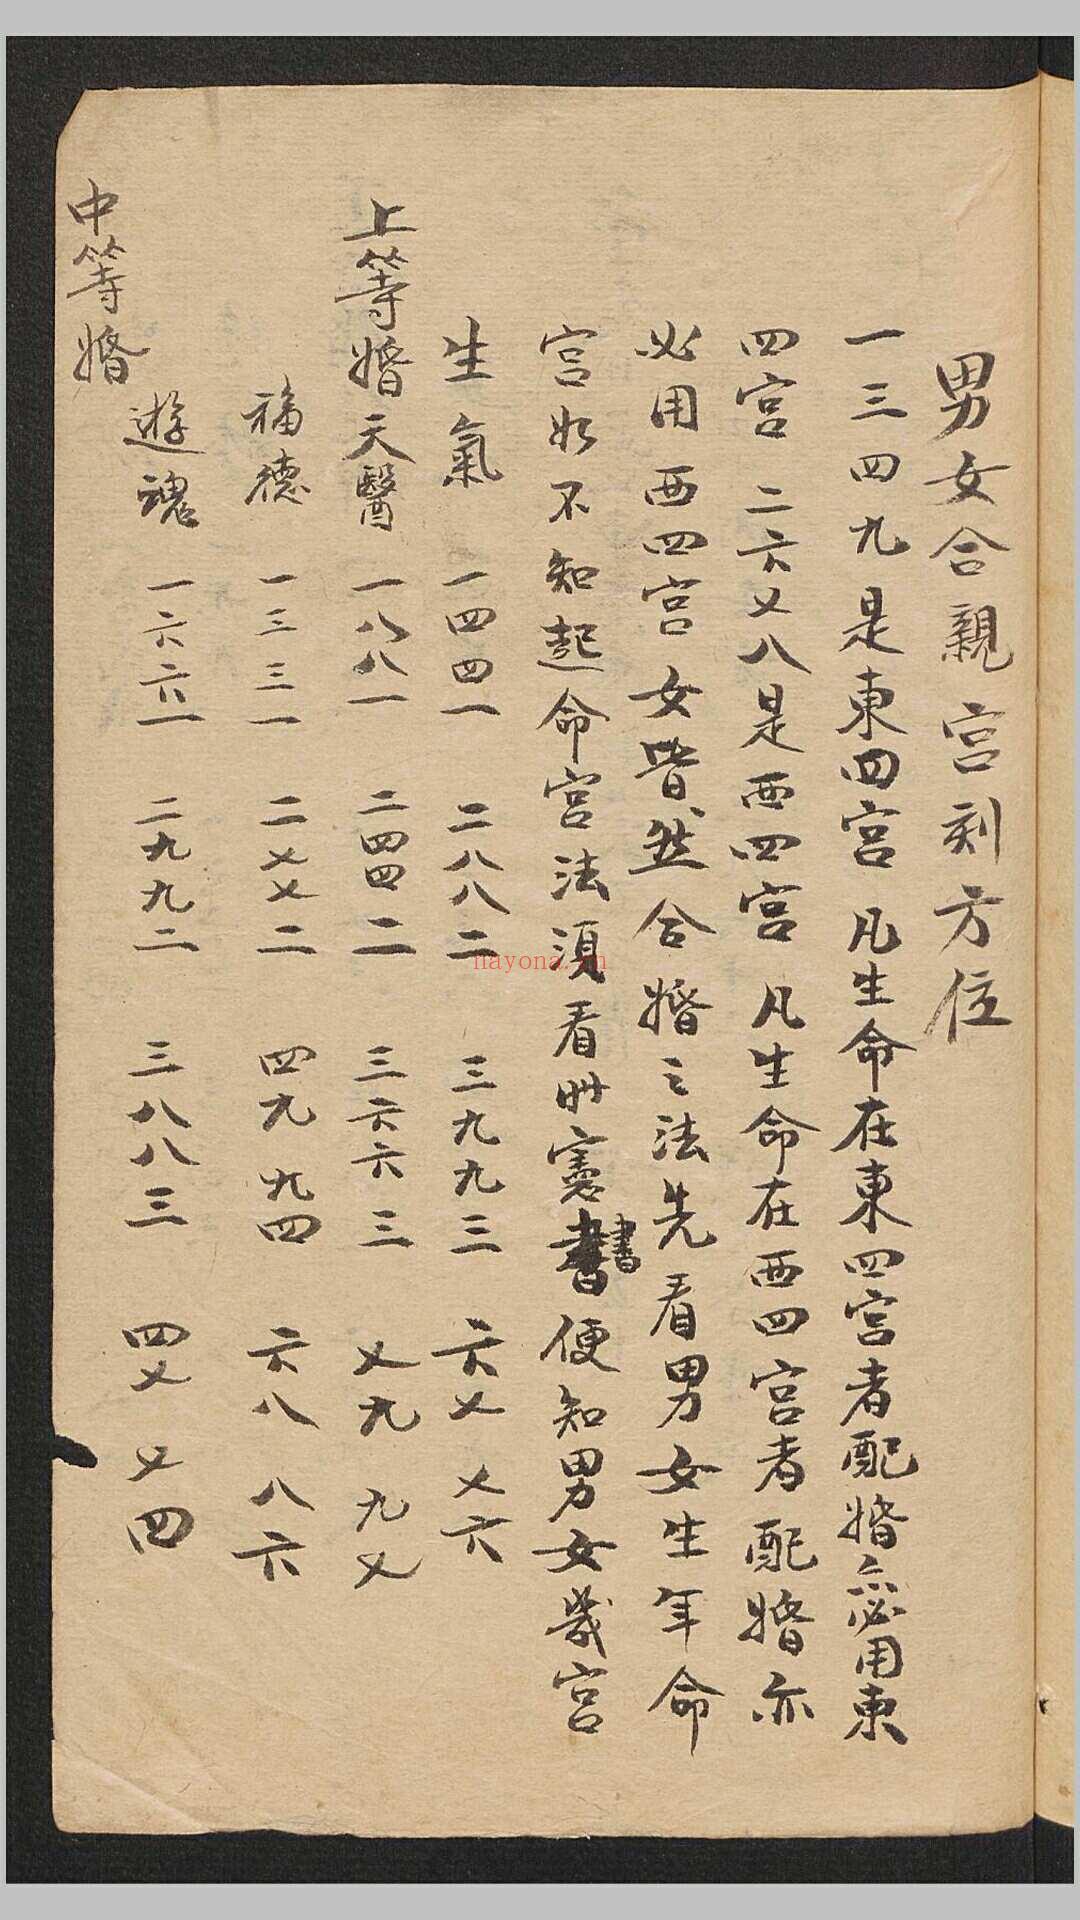 男女合親宮刻方位
一三四九是東四宮凡生命在東四宮者配婚亦必用東
四宮二六乂八是西四宮凡生命在西四宮者配婚亦
必用西四宮女皆然合婚之法先看男女生年命
宮如不知起命宮法須看時憲書書便知男女幾宮
生氣 一四四一 二八八二 三九九三 六乂乂六
上等婚天醫 一八八一 二四四二 三六六三 乂九九乂
福德 一三三一 二乂乂二 四九九四 六八八六
遊魂 一六六一 二九九二 三八八三 四乂乂四
中等婚
nayona.cn